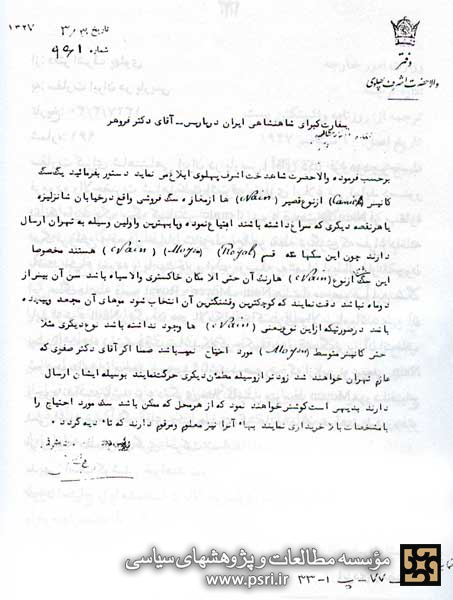 تاریخ ۳ ۱۳۲۷
شماره ۹۹۱
دفتر
والاحضرت اشرف پهلوی
سفارت کبرای شاهنشاهی ایران درپاریس ــ آقای دکتر فروهر
برحسب فرموده والاحضرت شاهدخت اشرف پهلوی ابلاغ می نماید دستور بفرمائید یک سگ
کانیس (Canich) ازنوع قصیر (Nain) ها ازمغازه سگ فروشی واقع درخیابان شانزلیزه
یا هرنقطه دیگری که سراغ داشته باشند ابتیاع نموده وبا بهترین واولین وسیله به تهران ارسال
دارند چون این سگها سه قسم (Royal) (Moyen) (Nain) هستند مخصوصا
این سگ ازنوع (Nain) ها رنگ آن حتی الامکان خاکستری والا سیاه باشد سن آن بیش از
دوماه نباشد دقت نمایند که کوچکترین وقشنگترین آن انتخاب شود موهای آن مجعد وپیچیده
باشد درصورتیکه ازاین نوع یعنی (Nain) ها وجود نداشته باشد نوع دیگری مثلا
حتی کانیز متوسط (Moyen) مورد احتیاج نمیباشد ضمنا اگر آقای دکتر صفوی که
عازم تهران خواهند شد زودتر ازوسیله مطمئن دیگری حرکت نمایند بوسیله ایشان ارسال
دارند بدیهی است کوشش خواهند نمود که از هرمحل که ممکن باشد سگ مورد احتیاج را
بامشخصات بالا خریداری نمایند بهای آنرا نیز معلوم ومرقوم دارند که تادیه گردد
مؤسسه مطالعات و پژوهشهای سیاسی
www.psri.ir
۷۷ - پ ۱ - ۳۳